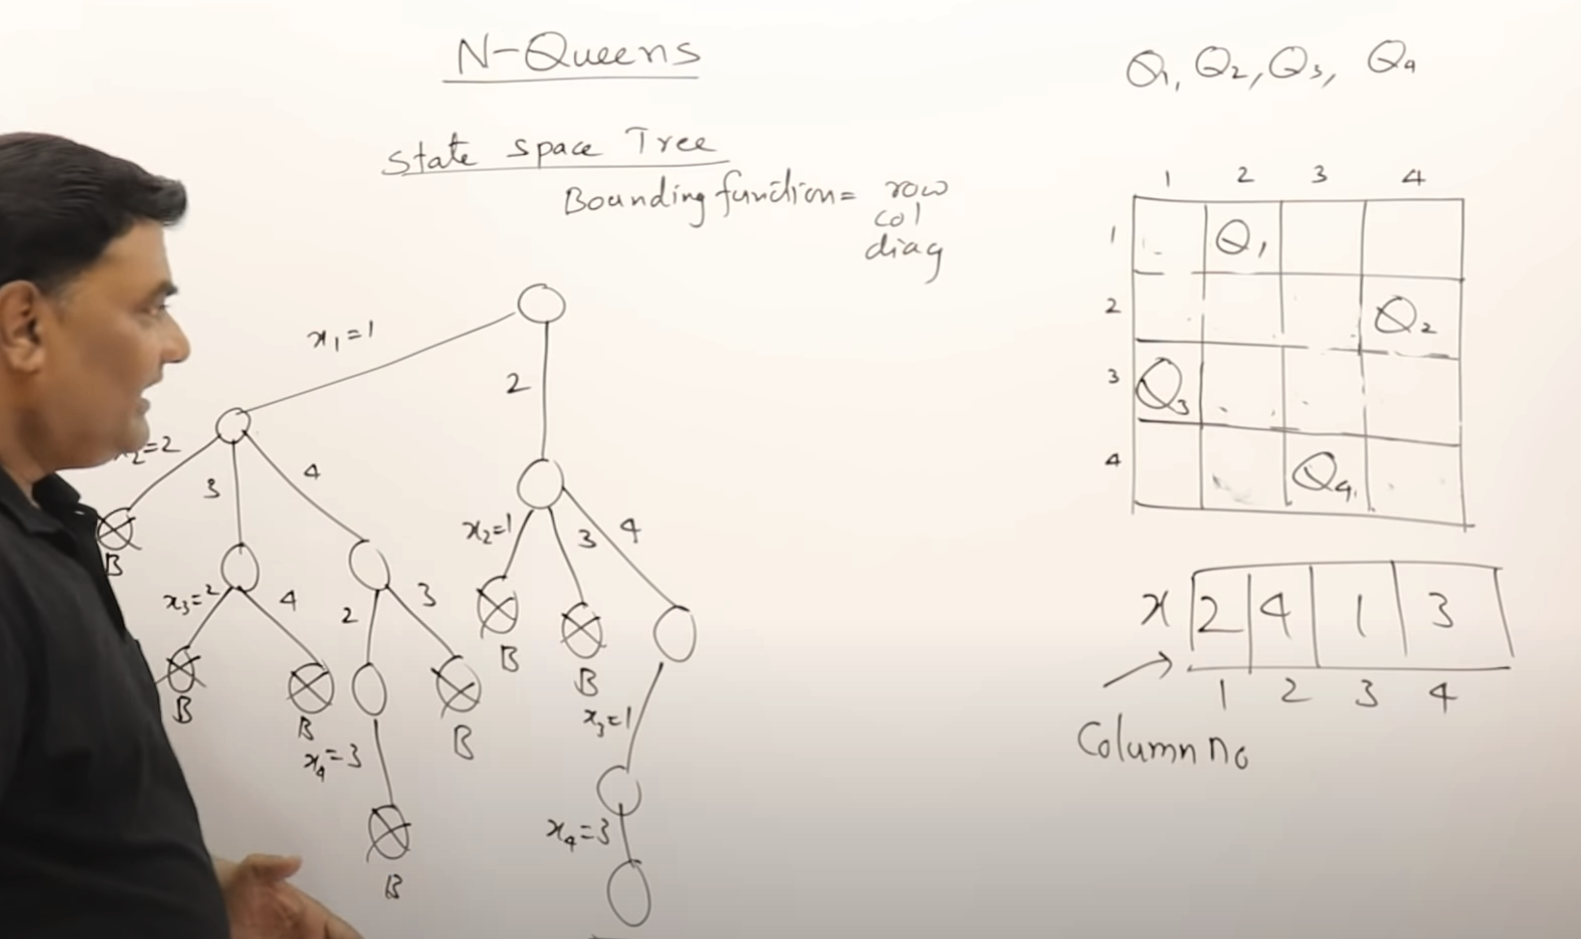 N-Queens
State space Tree
Bounding function = row
col
diag
x₁=1
2
x₂=2
3
4
x₂=1
3
4
B
x₃=2
4
2
3
B
B
B
B
B
x₃=1
x₄=3
B
x₄=3
Q₁, Q₂, Q₃, Q₄
1 2 3 4
1 Q₁
2 Q₂
3 Q₃
4 Q₄
x 2 4 1 3
1 2 3 4
Column no